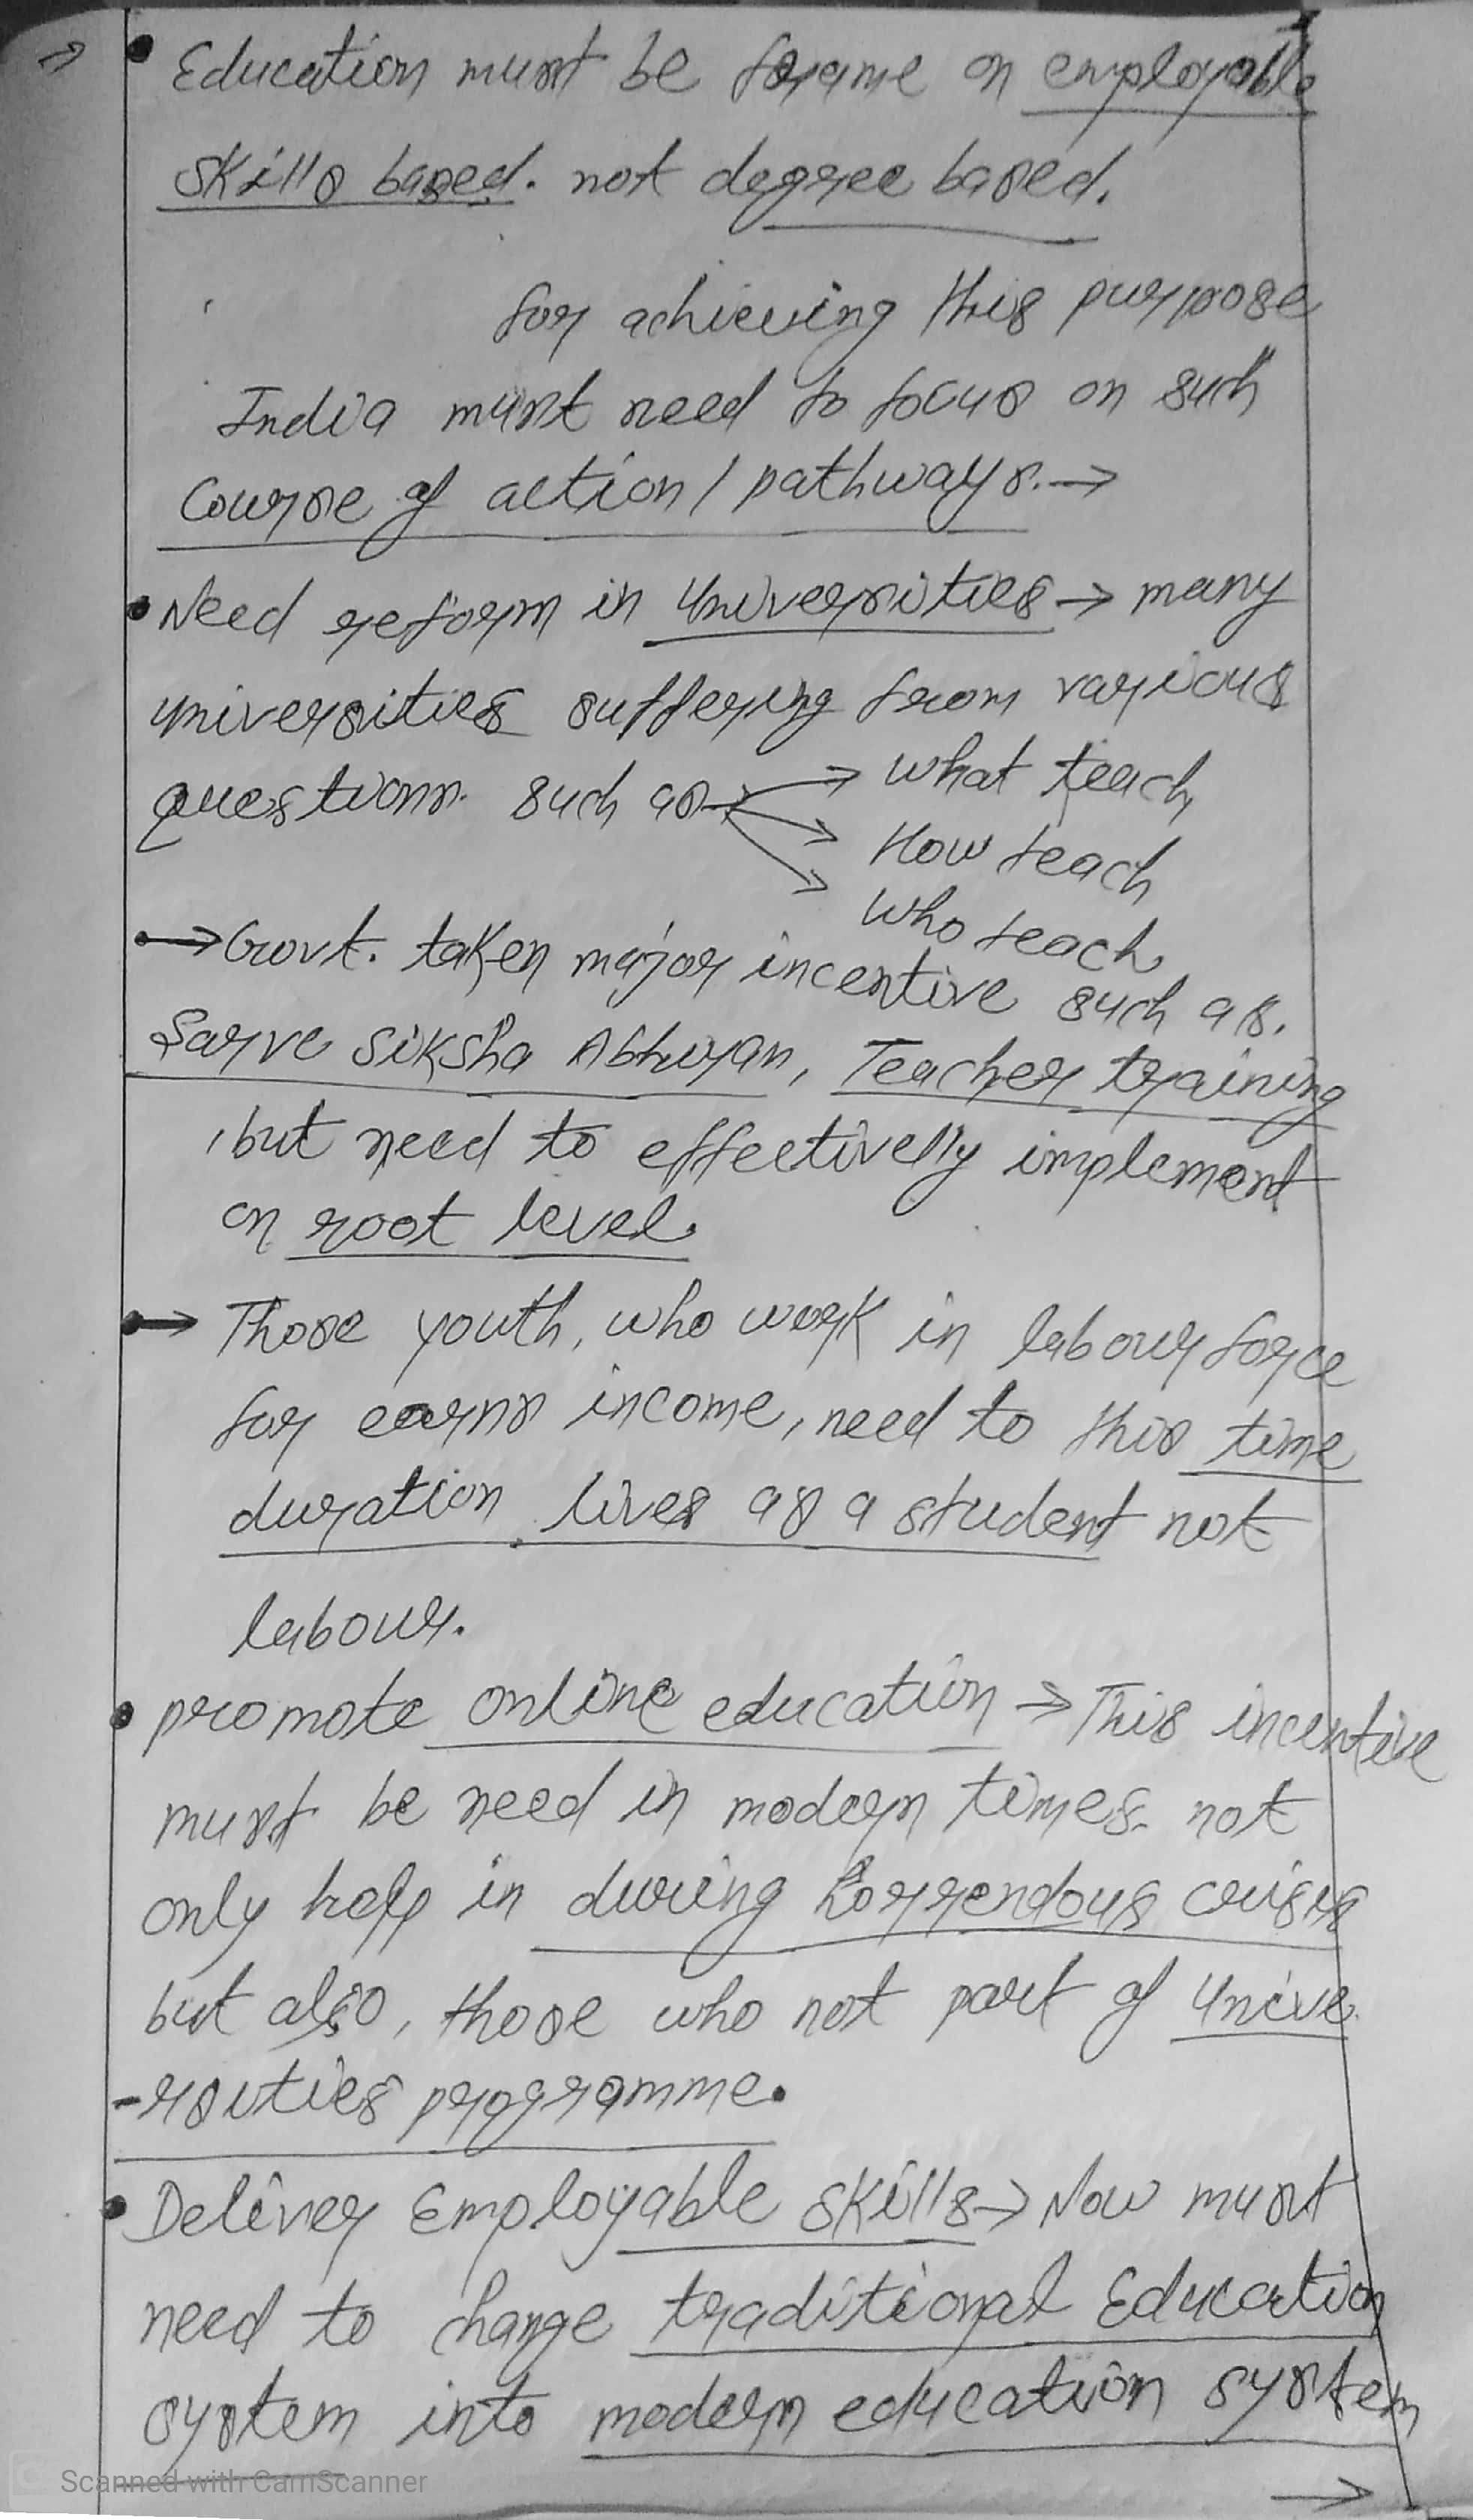 ⇒ • Education must be frame on employable
skills based. not degree based.
for achieving this purpose
India must need to focus on such
Course of action / pathways. →
• Need reform in Universities → many
universities suffering from various
questions. such as → what teach
→ How teach
→ who teach
•→ Govt. taken major incentive such as.
Sarve Siksha Abhiyan, Teacher training
, but need to effectivelly implement
on root level.
•→ Those youth, who work in labour force
for earns income, need to this time
duration lives as a student not
labour.
• promote online education → This incentive
must be need in modern times. not
only help in during horrendous crisis
but also, those who not part of Unive
-rsities programme.
• Deliver Employable skills → Now must
need to change traditional Education
system into modern education system
→
Scanned with CamScanner